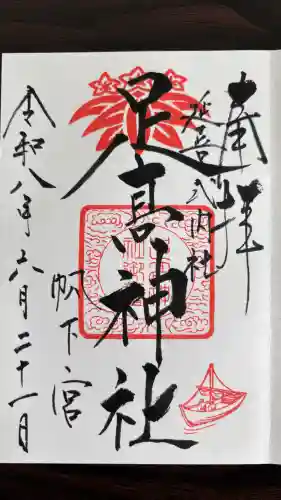 奉拝
延喜式内社
足高神社
帆下宮
令和八年六月二十一日